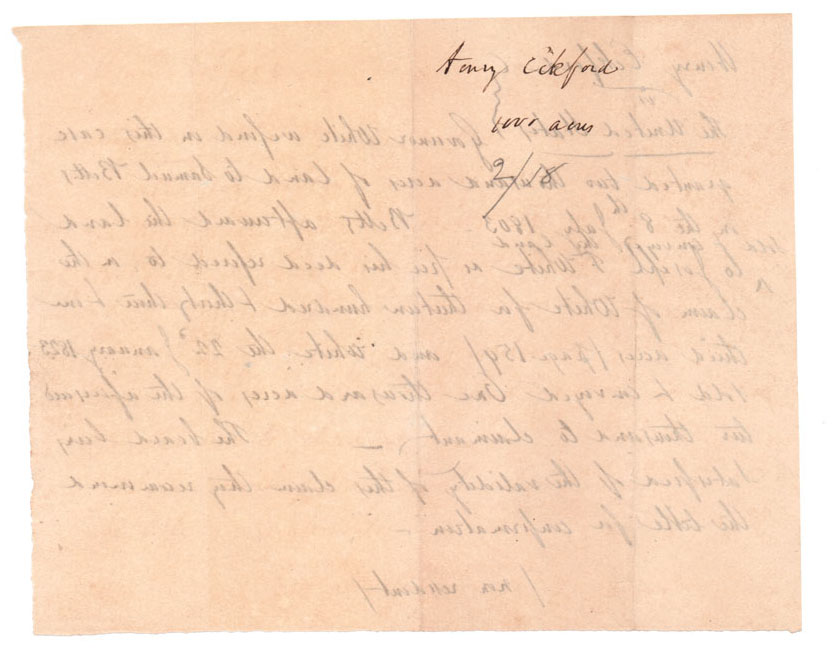 Henry Eckford
1000 acres
2/18
Henry Eckford
vs
The United States } Governor White we find in this case
granted two thousand acres of land to Samuel Betts
on the 8th July 1803. Betts afterward the land
to Joseph F White as per his deed referred to in the
claim of White for thirteen hundred & thirty three & one
third acres (page 159) and White the 22d January 1823
sold & conveyed One thousand acres of the aforesaid
two thousand to claimant — The board being
satisfied of the validity of this claim they recommend
the title for confirmation —
(non resident)